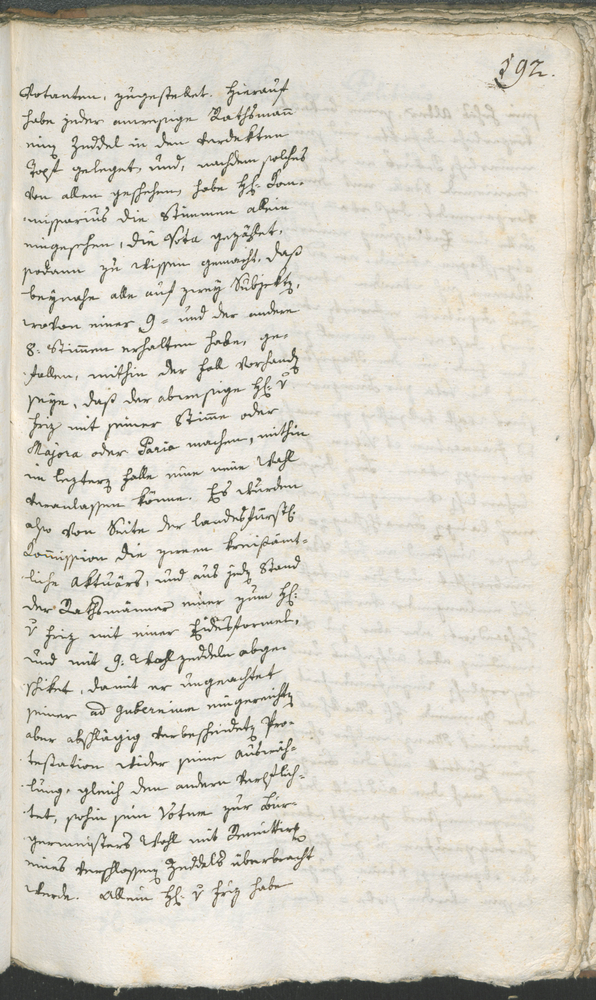 192.
Votanten, zugestellet. Hierauf
habe jeder anwesige Rathsmann
einen Zeddel in den verdekten
Topf geleget, und, nachdem solches
von allen geschehen, habe Hl: Kom-
missarius die Stimmen allein
eingesehen, die Vota gezählet,
sodann zu wissen gemacht, daß
beynahe alle auf zwey Subjekte,
wovon einer 9 - und der andere
8: Stimmen erhalten habe, ge-
fallen, mithin der Fall vorhanden
seye, daß der abwesige Hl: v
Friz mit seiner Stimme oder
Majora oder Paria machen, mithin
im lezteren Falle eine neue Wahl
veranlassen könne. Es wurden
also von Seite der landesfürstl:
Kommission die zween kreisämt-
liche Aktuärs, und aus jedem Stand
der Rathsmänner einer zum Hl:
v Friz mit einer Eidesformel,
und mit 9: Wahlzeddeln abge-
schiket, damit er ungeachtet
seiner ad Gubernium eingereichten
aber abschlägig verbeschiedenen Pro-
testation wider seine
gleich den andern verpflich-
tet, sohin sein Votum zur Bür-
germeisters Wahl mit
eines verschlossenen Zeddels überbracht
werde. Allein Hl: v Friz habe